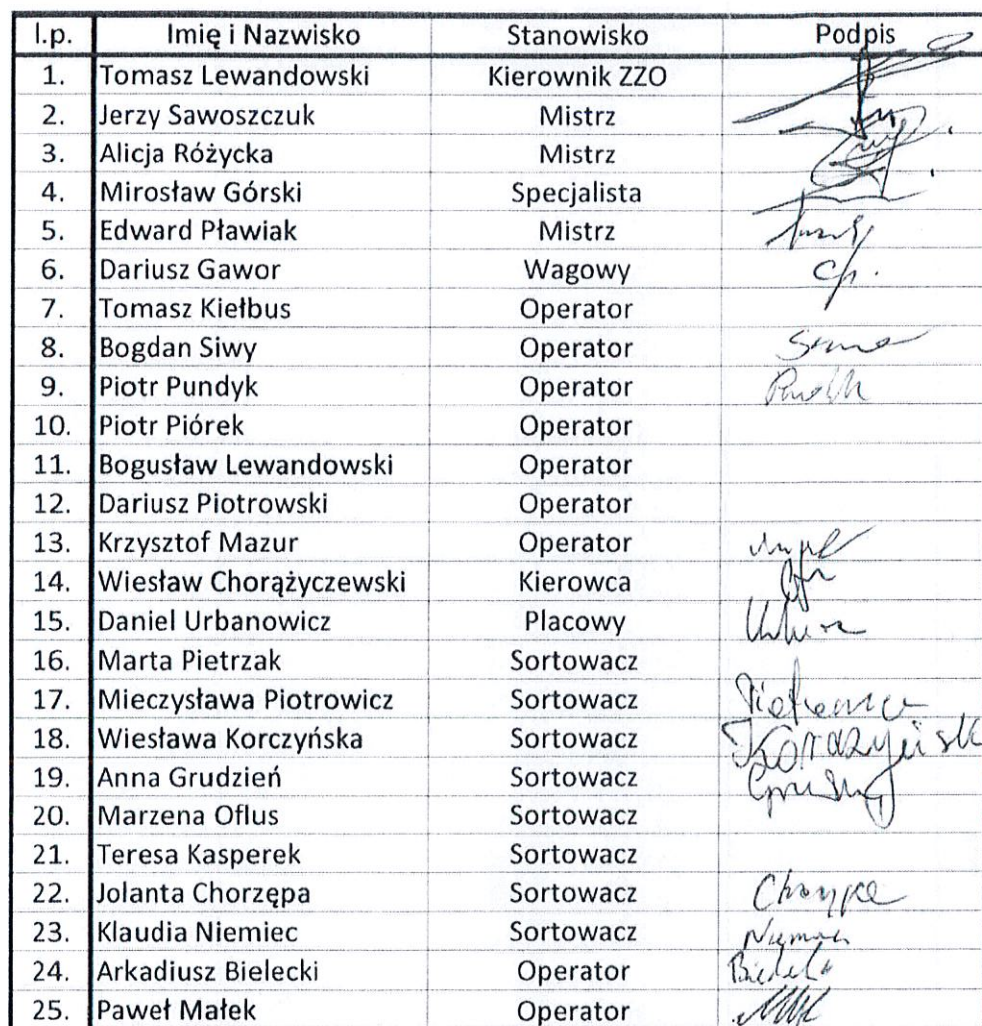 l.p. Imię i Nazwisko Stanowisko Podpis
1. Tomasz Lewandowski Kierownik ZZO
2. Jerzy Sawoszczuk Mistrz
3. Alicja Różycka Mistrz
4. Mirosław Górski Specjalista
5. Edward Pławiak Mistrz
6. Dariusz Gawor Wagowy
7. Tomasz Kiełbus Operator
8. Bogdan Siwy Operator
9. Piotr Pundyk Operator
10. Piotr Piórek Operator
11. Bogusław Lewandowski Operator
12. Dariusz Piotrowski Operator
13. Krzysztof Mazur Operator
14. Wiesław Chorążyczewski Kierowca
15. Daniel Urbanowicz Placowy
16. Marta Pietrzak Sortowacz
17. Mieczysława Piotrowicz Sortowacz
18. Wiesława Korczyńska Sortowacz
19. Anna Grudzień Sortowacz
20. Marzena Oflus Sortowacz
21. Teresa Kasperek Sortowacz
22. Jolanta Chorzępa Sortowacz
23. Klaudia Niemiec Sortowacz
24. Arkadiusz Bielecki Operator
25. Paweł Małek Operator